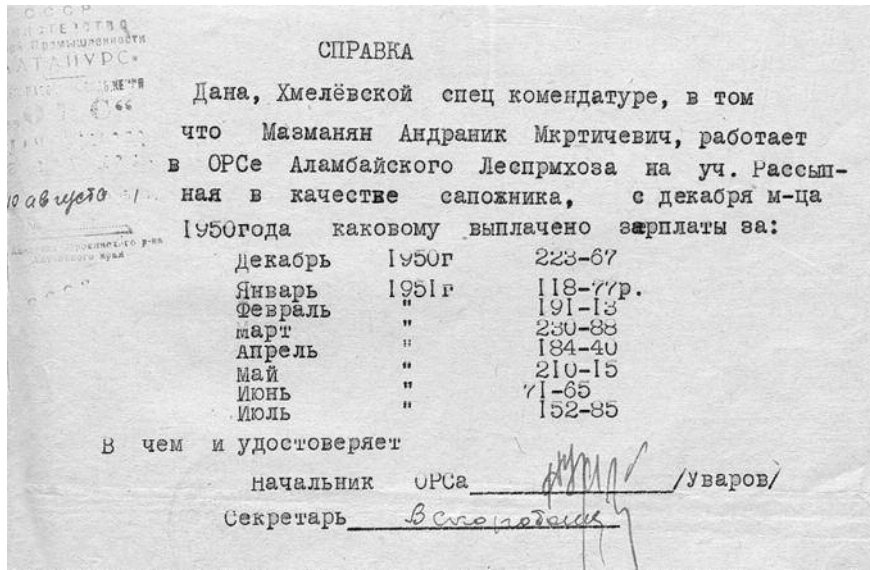 СССР
Промышленности
10 августа
СПРАВКА
Дана, Хмелёвской спец комендатуре, в том
что Мазманян Андраник Мкртичевич, работает
в ОРСе Аламбайского Леспрмхоза на уч. Рассып-
ная в качестве сапожника, с декабря м-ца
1950года каковому выплачено зарплаты за:
Декабрь 1950г 223-67
Январь 1951г 118-77р.
Февраль " 191-13
Март " 230-88
Апрель " 184-40
Май " 210-15
Июнь " 71-65
Июль " 152-85
В чем и удостоверяет
Начальник ОРСа /Уваров/
Секретарь